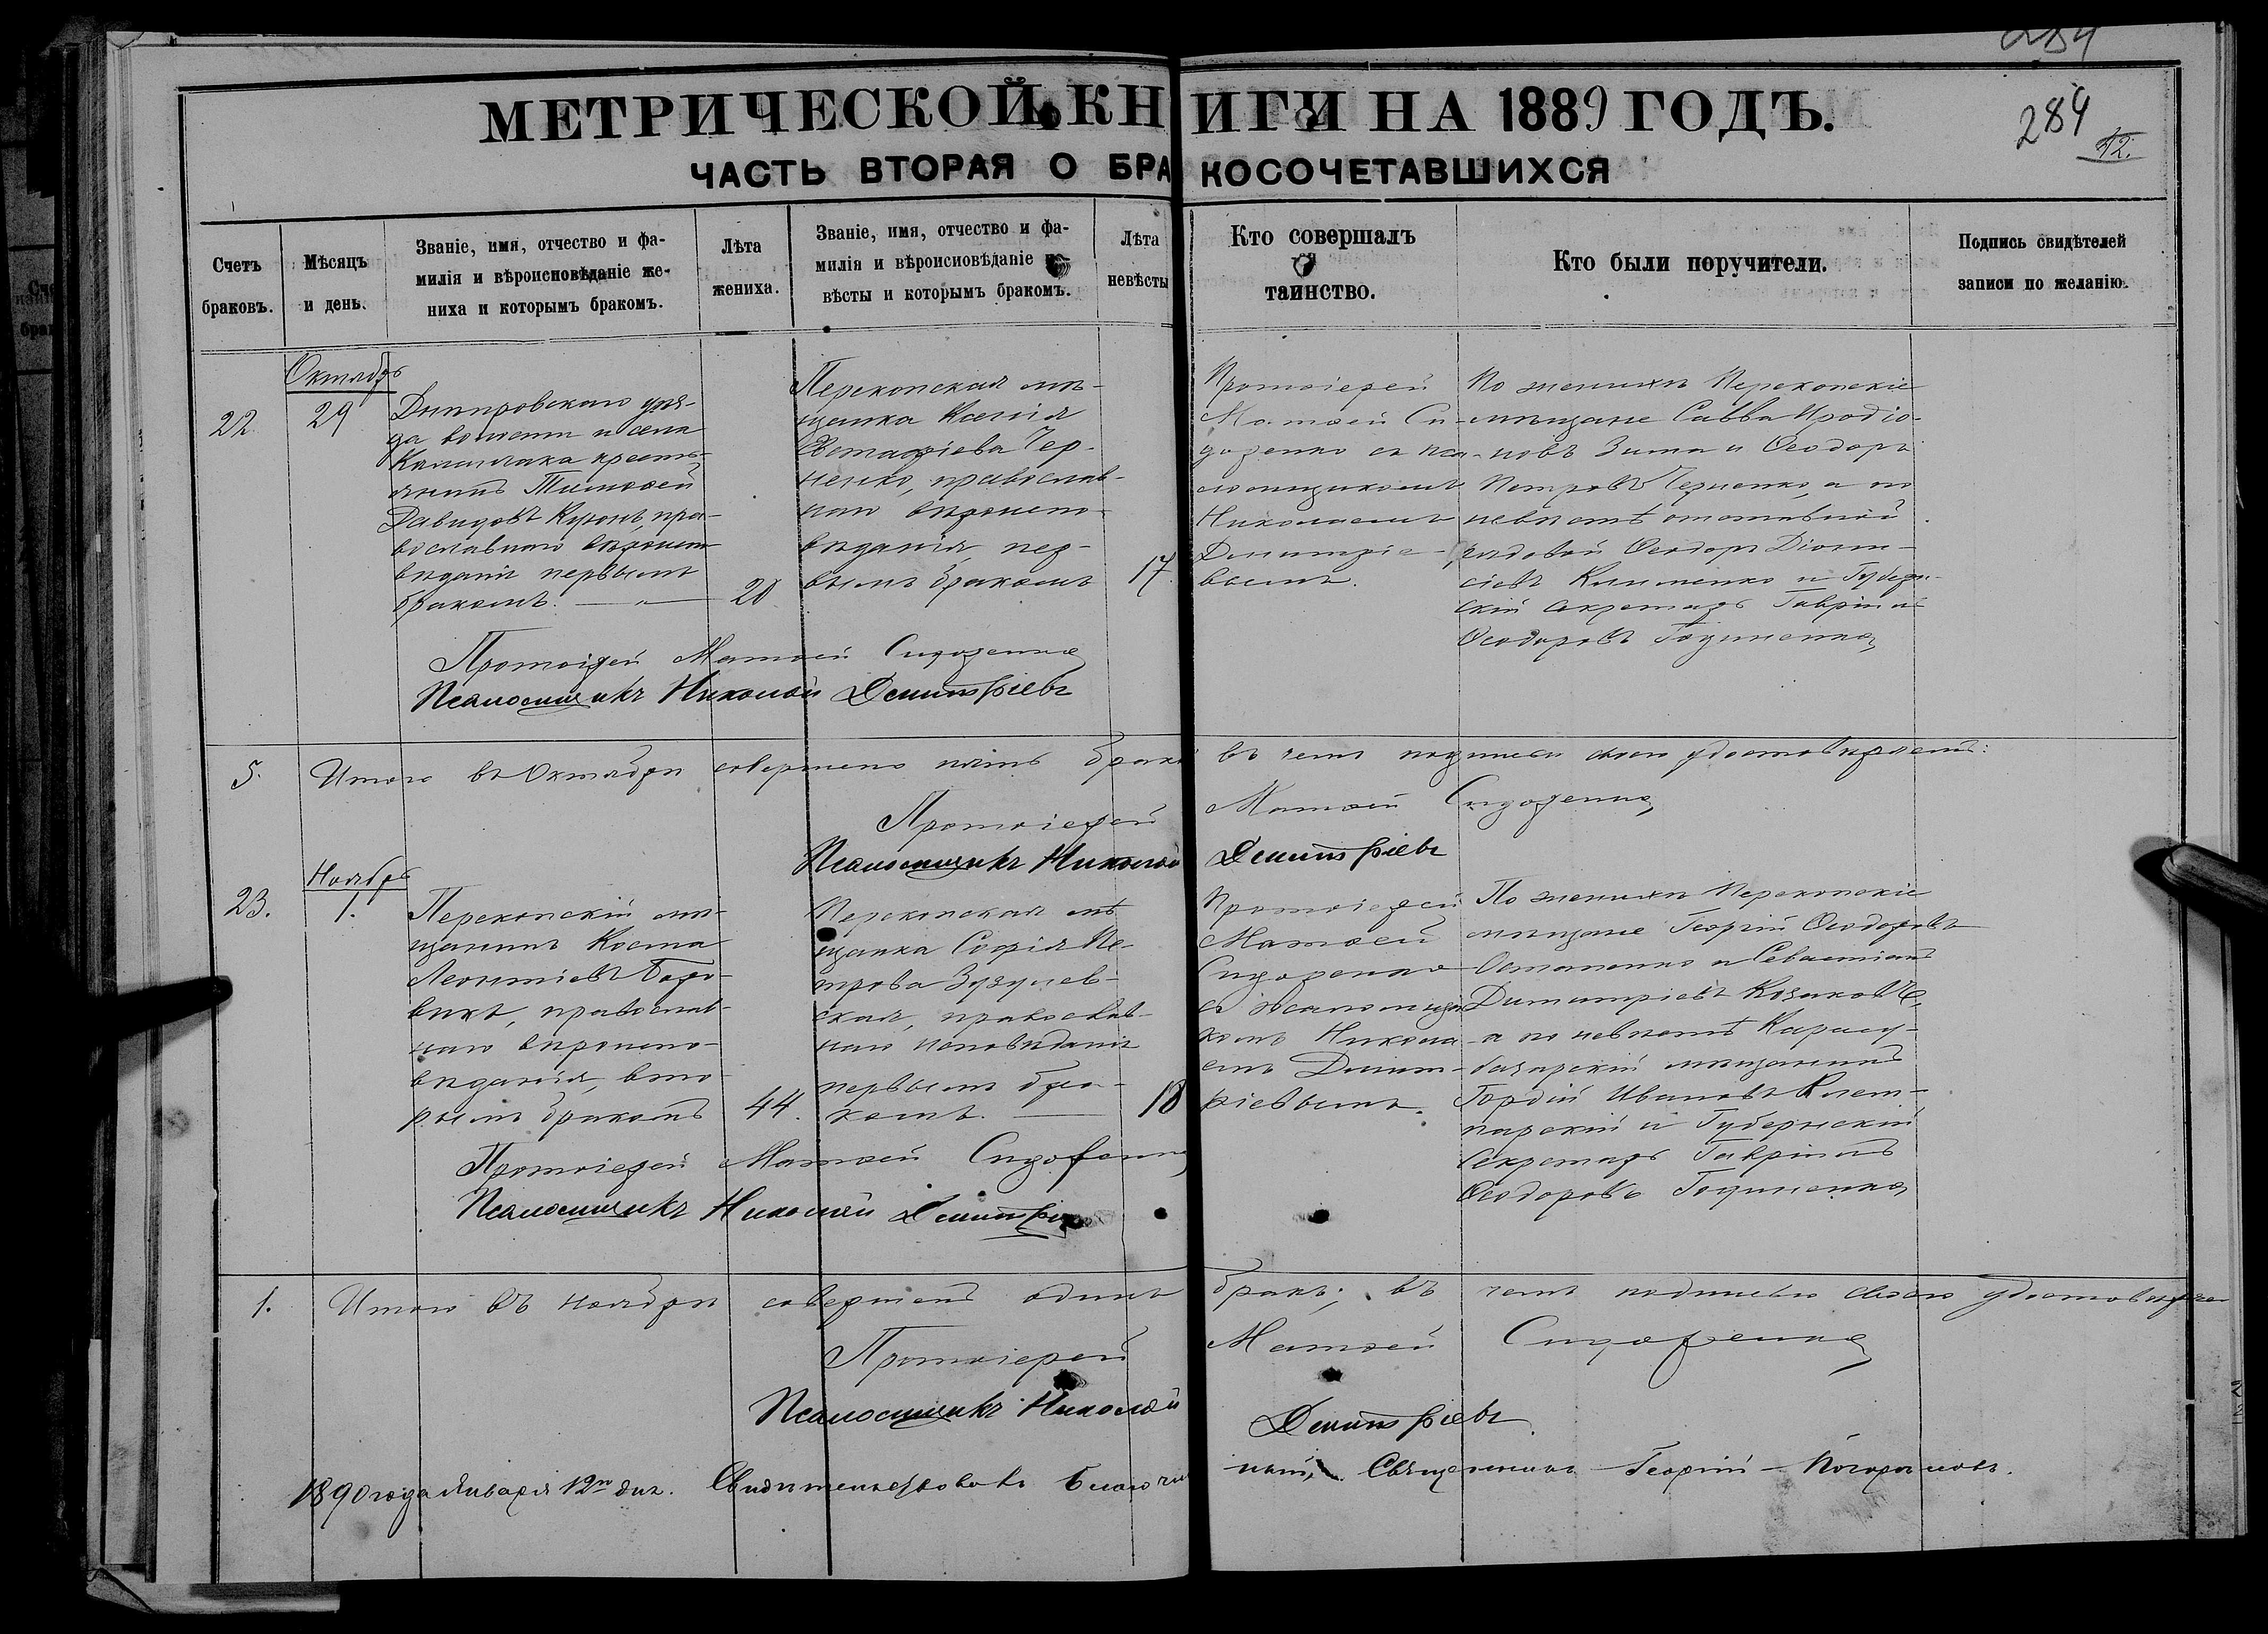 284
МЕТРИЧЕСКОЙ КНИГИ НА 1889 ГОДЪ.
284
12.
ЧАСТЬ ВТОРАЯ О БРАКОСОЧЕТАВШИХСЯ
Счетъ
браковъ.
Мѣсяцъ
и день.
Званіе, имя, отчество и фа-
милія и вѣроисповѣданіе же-
ниха и которымъ бракомъ.
Лѣта
жениха.
Званіе, имя, отчество и фа-
милія и вѣроисповѣданіе
вѣсты и которымъ бракомъ.
Лѣта
невѣсты
Кто совершалъ
таинство.
Кто были поручители.
Подпись свидѣтелей
записи по желанію.
22.
Октябрь
29
Днѣпровскаго уѣз-
да волости и села
Каланчака кресть-
янинъ Тимоѳей
Давидовъ Купонъ, пра-
вославнаго вѣроиспо-
вѣданія первымъ
бракомъ.
20
Перекопская мѣ-
щанка Ксенія
Евстафіева Чер-
ненко, православ-
наго вѣроиспо-
вѣданія, пер-
вымъ бракомъ
17.
Протоіерей
Матѳей Си-
доренко съ пса-
ломщикомъ
Николаемъ
Димитріе-
вымъ.
По женихѣ Перекопскіе
мѣщане Савва Иродіо-
новъ Зима и Ѳеодоръ
Петровъ Черненко, а по
невѣстѣ отставной
рядовой Ѳеодоръ Діони-
сіевъ Клименко и Губерн-
скій секретарь Гавріилъ
Ѳеодоровъ Годиненко
Протоіерей Матѳей Сидоренко
Псаломщикъ Николай Димитріевъ
5. Итого въ Октябрѣ совершено пять браковъ въ чемъ подписью своею удостовѣряемъ:
Протоіерей Матѳей Сидоренко,
Псаломщикъ Николай Димитріевъ
23.
Ноябрь
1.
Перекопскій мѣ-
щанинъ Косма
Леонтіевъ Боро-
викъ, православ-
наго вѣроиспо-
вѣданія, вто-
рымъ бракомъ
44.
Перекопская мѣ-
щанка Софія Пе-
трова Зузулев-
ская, православ-
наго исповѣданія
первымъ бра-
комъ.
18
Протоіерей
Матѳей
Сидоренко
съ псаломщи-
комъ Никола-
емъ Димит-
ріевымъ.
По женихѣ Перекопскіе
мѣщане Георгій Ѳеодоровъ
Остапенко и Севастіанъ
Димитріевъ Козаковъ,
а по невѣстѣ Карасу-
базарскій мѣщанинъ
Гордій Ивановъ
и Губернскій
Секретарь Гавріилъ
Ѳеодоровъ Годиненко
Протоіерей Матѳей Сидоренко
Псаломщикъ Николай Димитріевъ
1. Итого въ ноябрѣ совершенъ одинъ бракъ; въ чемъ подписью своею удостовѣряемъ
Протоіерей Матѳей Сидоренко
Псаломщикъ Николай Димитріевъ
1890 года Января 12го дня. Свидѣтельствовалъ Благочинный, Священникъ Георгій